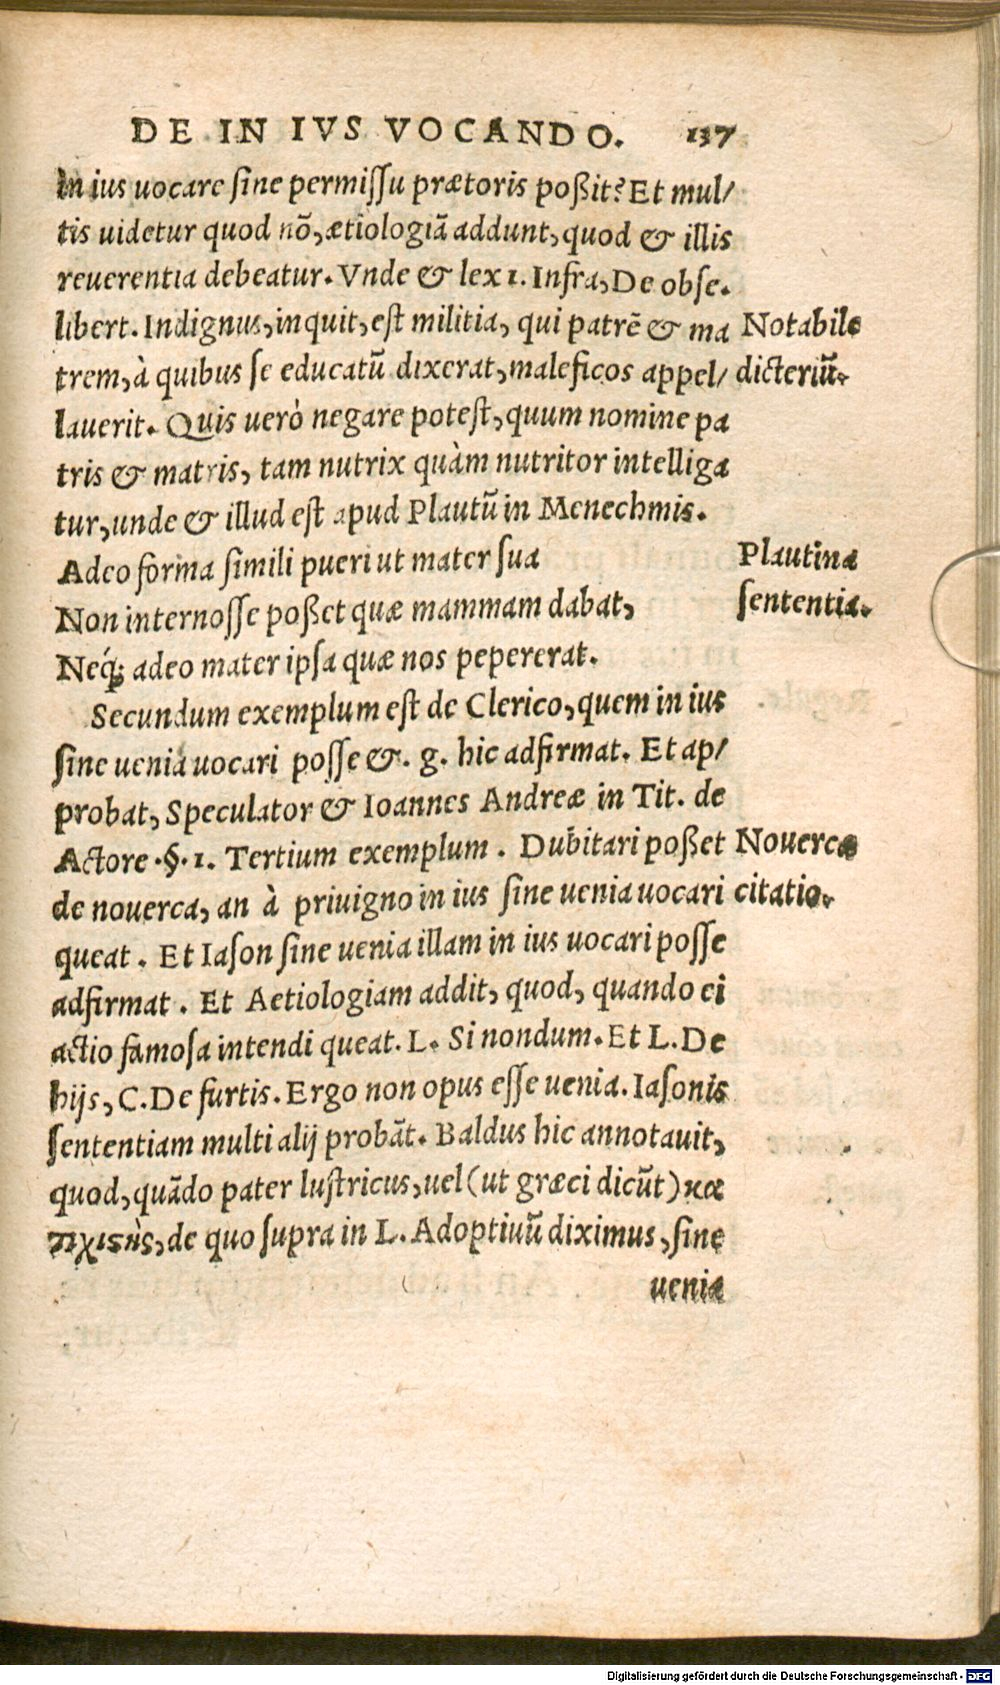 DE IN IVS VOCANDO. 137
In ius uocare sine permissu prætoris poßit? Et mul/
tis uidetur quod nõ, ætiologiã addunt, quod & illis
reuerentia debeatur. Vnde & lex 1. Infra, De obse.
libert. Indignus, inquit, est militia, qui patrẽ & ma
Notabile
trem, à quibus se educatũ dixerat, maleficos appel/
dicteriũ.
lauerit. Quis uerò negare potest, quum nomine pa
tris & matris, tam nutrix quàm nutritor intelliga
tur, unde & illud est apud Plautũ in Menechmis.
Adeo forma simili pueri ut mater sua
Plautina
Non internosse poßet quæ mammam dabat,
sententia.
Neq́; adeo mater ipsa quæ nos pepererat.
Secundum exemplum est de Clerico, quem in ius
sine uenia uocari posse &. g. hic adfirmat. Et ap/
probat, Speculator & Ioannes Andreæ in Tit. de
Actore .§. 1. Tertium exemplum. Dubitari poßet
Nouercæ
de nouerca, an à priuigno in ius sine uenia uocari
citatio.
queat. Et Iason sine uenia illam in ius uocari posse
adfirmat. Et Aetiologiam addit, quod, quando ei
actio famosa intendi queat. L. Si nondum. Et L. De
hijs, C. De furtis. Ergo non opus esse uenia. Iasonis
sententiam multi alij probãt. Baldus hic annotauit,
quod, quãdo pater lustricus, uel (ut græci dicũt) κα
πχιστὴς, de quo supra in L. Adoptiuũ diximus, sine
uenia
Digitalisierung gefördert durch die Deutsche Forschungsgemeinschaft - DFG